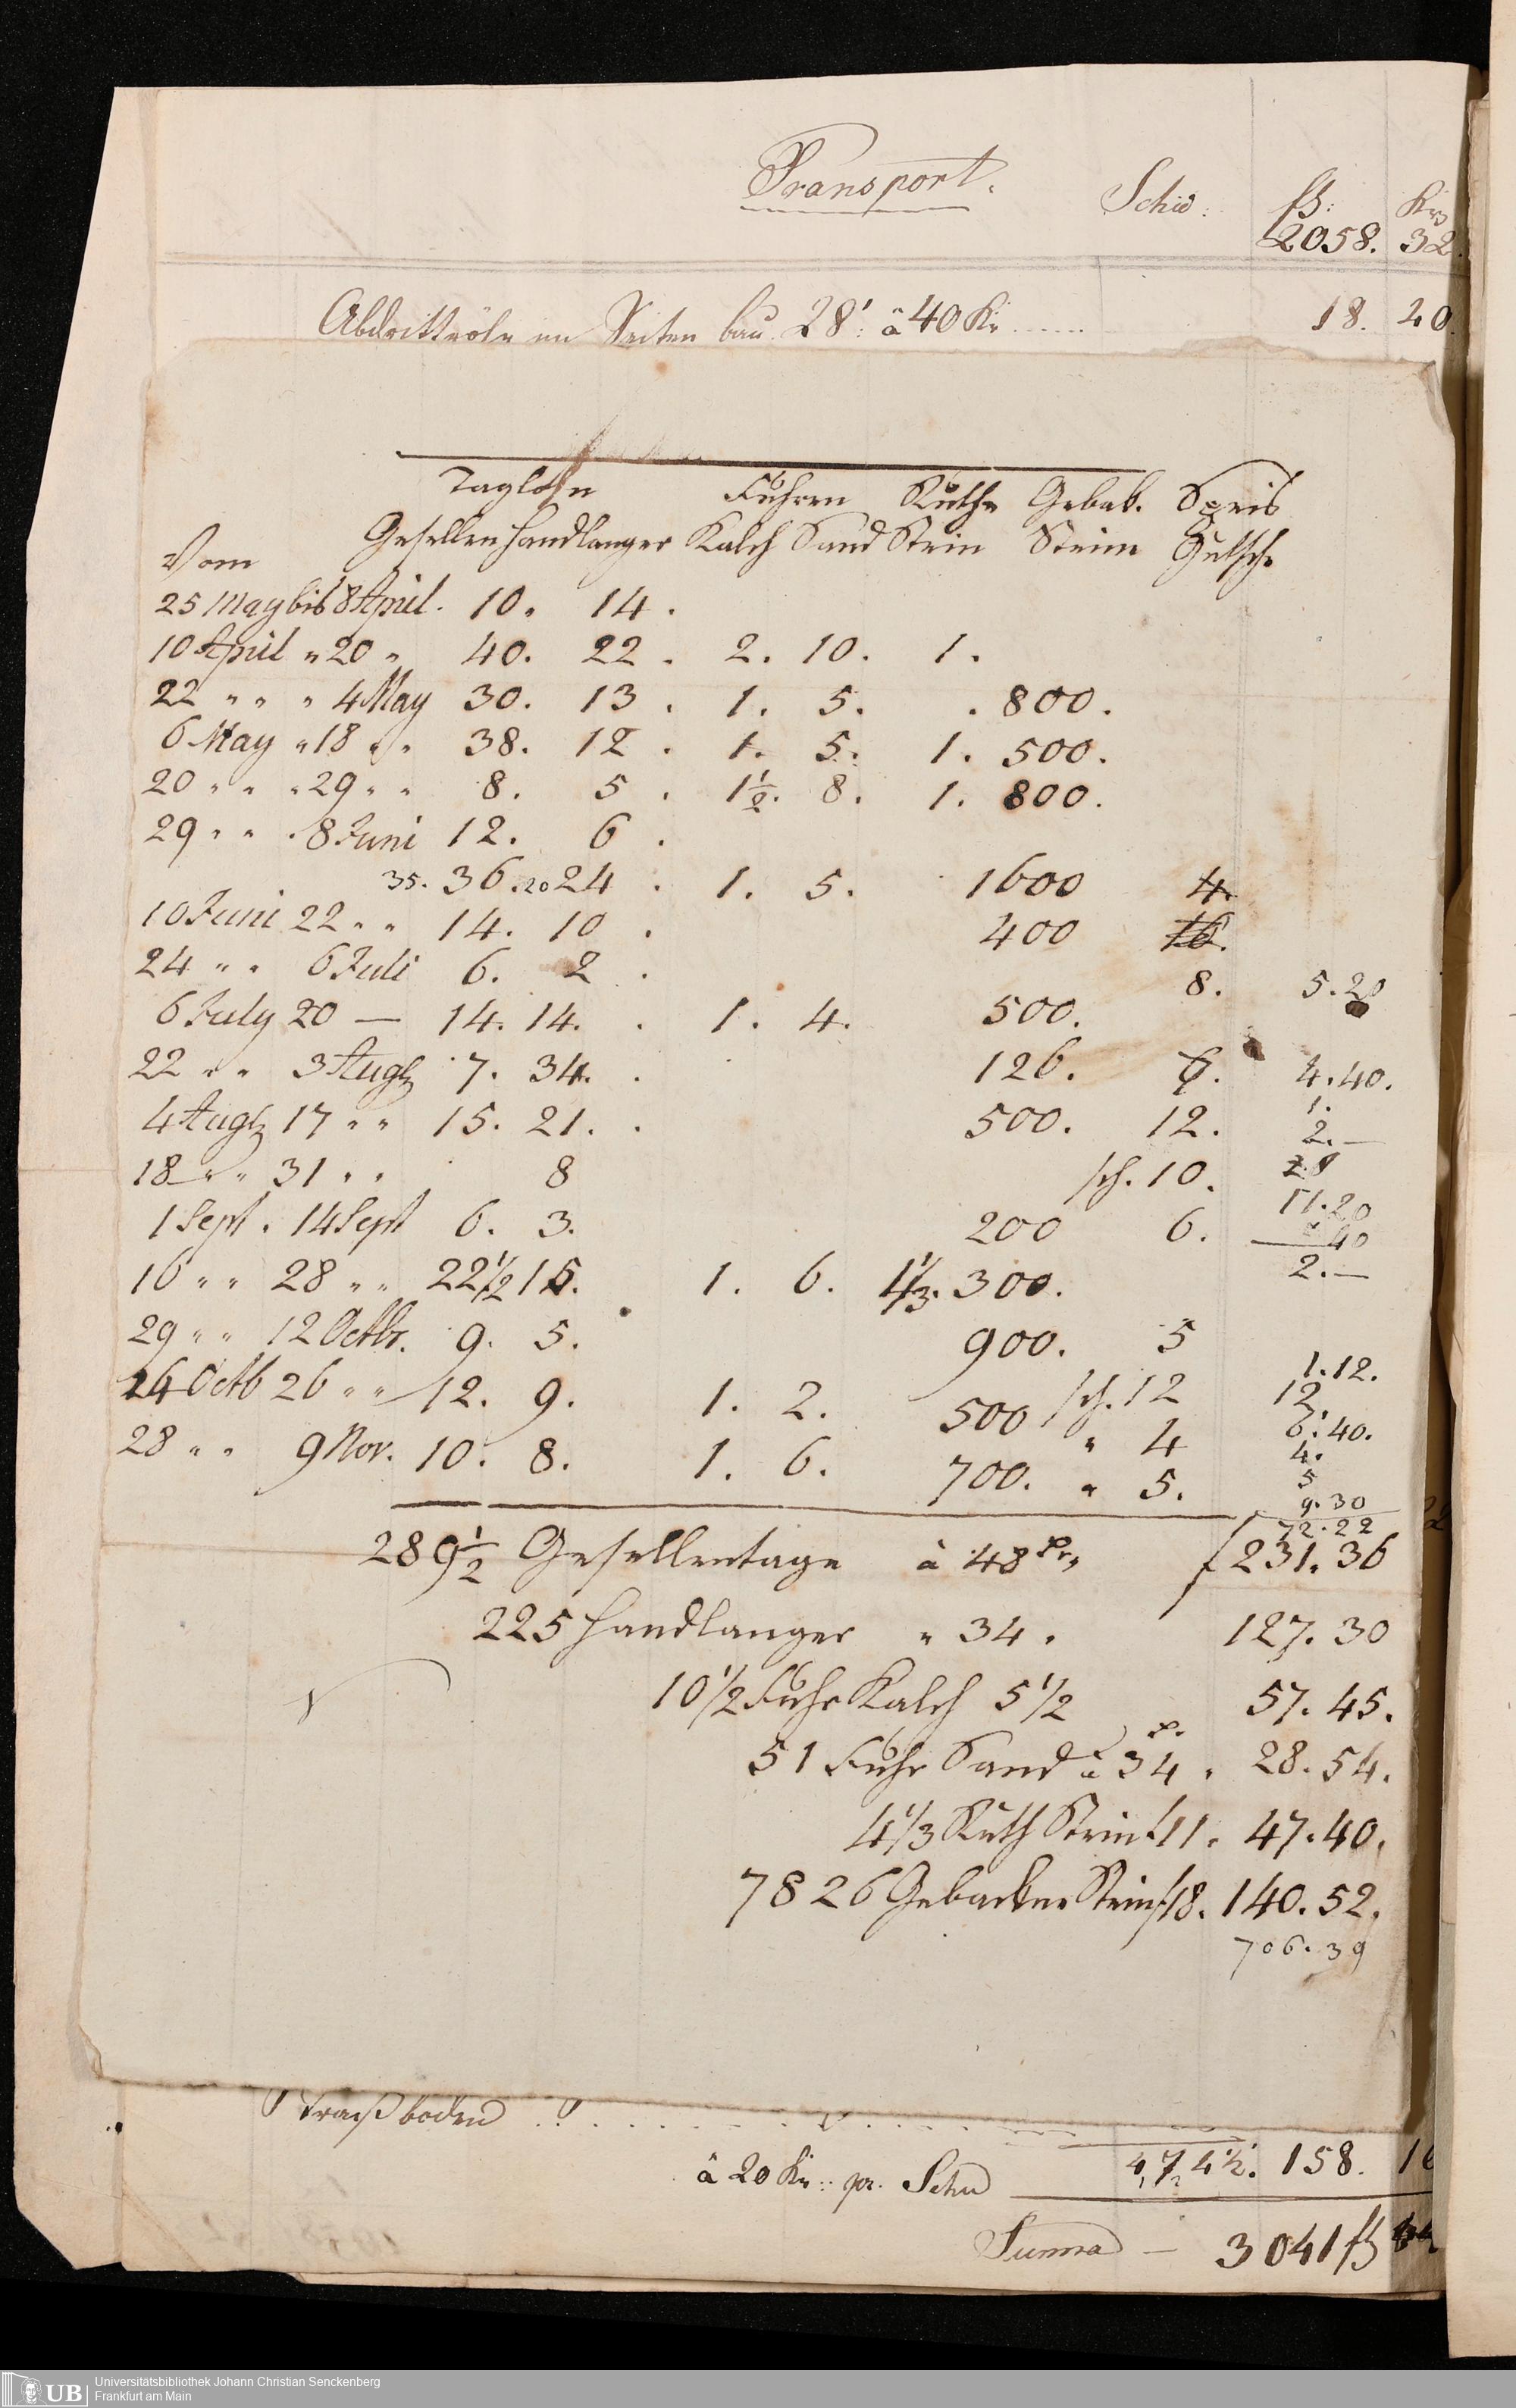 Transport.
Schu: fl: Kr
2058. 32
Abdrittröhr im Seiten bau 28': à 40 Kr ...... 18. 20.
Taglohn Fuhren Ruthe Gebak. Speis
Vom Gesellen Handlanger Kalch Sand Stein Steine
25 May bis 8 April. 10. 14.
10 April " 20 " 40. 22. 2. 10. 1.
22 " " " 4 May 30. 13. 1. 5. . 800.
6 May " 18 " " 38. 12. 1. 5. 1. 500.
20 " " " 29 " " 8. 5. 1 1/2. 8. 1. 800.
29 " " . 8 Juni 12. 6.
35. 36. 20 24. 1. 5. 1600 4.
10 Juni 22 " " 14. 10. 400 16.
24 " " 6 Juli 6. 2. 8. 5.20
6 July 20 — 14. 14. . 1. 4. 500.
22 " " 3 Augs 7. 34. . 126. 7. 4.40.
1.
4 Augs 17 " " 15. 21. . 500. 12. 2.—
18 " " 31 " " 8 sch. 10.
11.20
1 Sept . 14 Sept 6. 3. 200 6. 40
16 " " 28 " " 22 1/2 15. 1. 6. 1 1/3. 300. 2.—
29 " " 12 Octbr. 9. 5. 900. 5
1.12.
14 Octb 26 " " 12. 9. 1. 2. 500 sch. 12 12.
" 4 6.40.
4.
28 " " 9 Nov. 10. 8. 1. 6. 700. " 5. 5
9.30
72.22
289 1/2 Gesellentage à 48 Kr. f 231. 36
225 Handlanger " 34. 127. 30
10 1/2 Fuhr Kalch 5 1/2 57. 45.
51 Fuhr Sand à 34 Kr. 28. 54.
4 1/3 Ruth Stein f 11. 47. 40.
7826 Gebackne Stein f 18. 140. 52.
706. 39
Straßboden
à 20 Kr: pr. Schu 4,74 1/2. 158. 10
Summa — 3041 fl
UB Universitätsbibliothek Johann Christian Senckenberg
Frankfurt am Main